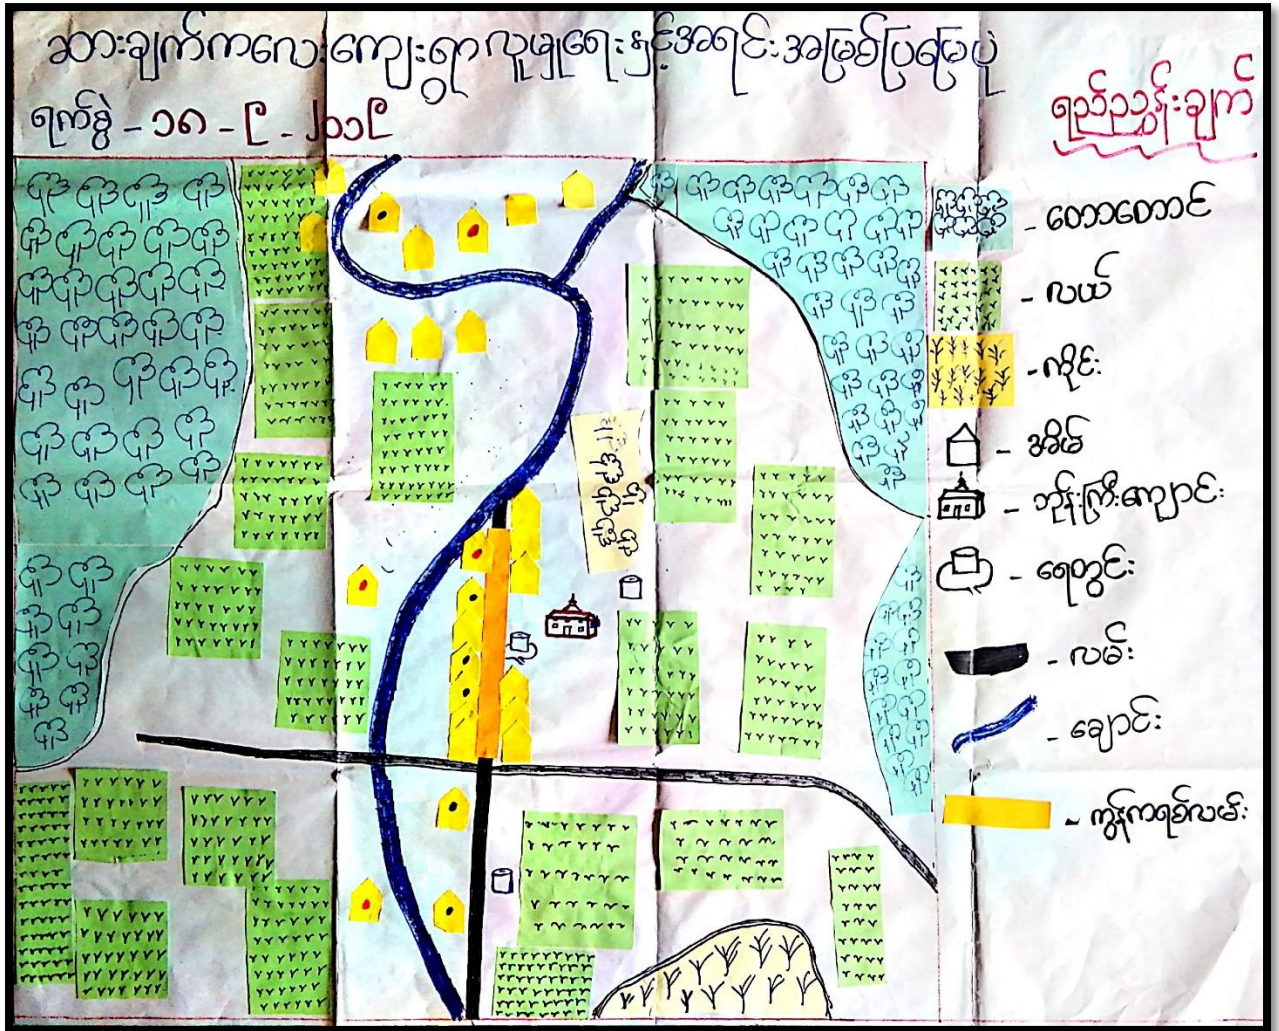 ဆားချက်ကလေးကျေးရွာလူမှုရေးနှင့်အရင်းအမြစ်ပြမြေပုံ
ရက်စွဲ - ၁၈ - ၉ - ၂၀၁၉
ရည်ညွှန်းချက်
- တောတောင်
- လယ်
- ကိုင်း
- အိမ်
- ဘုန်းကြီးကျောင်း
- ရေတွင်း
- လမ်း
- ချောင်း
- ကွန်ကရစ်လမ်း